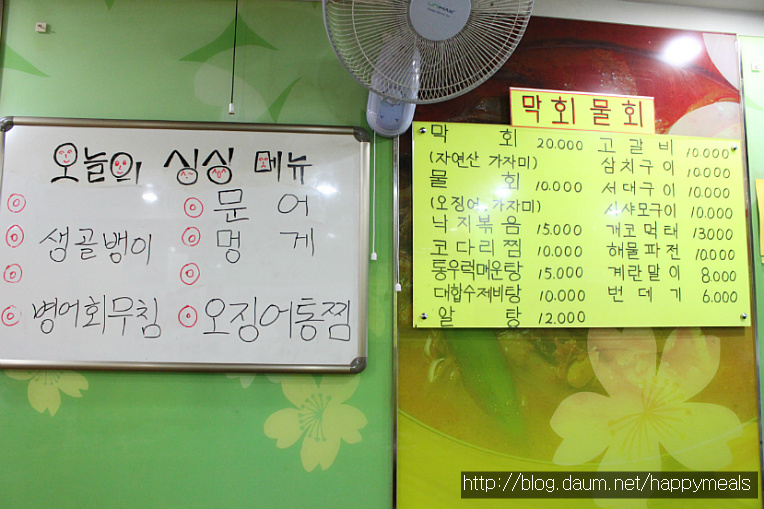 오늘의 싱싱 메뉴
문 어
생골뱅이 멍 게
병어회무침 오징어통찜
막회물회
막 회 20.000 고 갈 비 10.000
(자연산 가자미) 삼치구이 10.000
물 회 10.000 서대구이 10.000
(오징어, 가자미) 시샤모구이 10.000
낙지볶음 15.000 개코먹태 13000
코다리찜 10.000 해물파전 10000
통우럭매운탕 15.000 계란말이 8.000
대합수제비탕 10.000 번 데 기 6.000
알 탕 12.000
http://blog.daum.net/happymeals